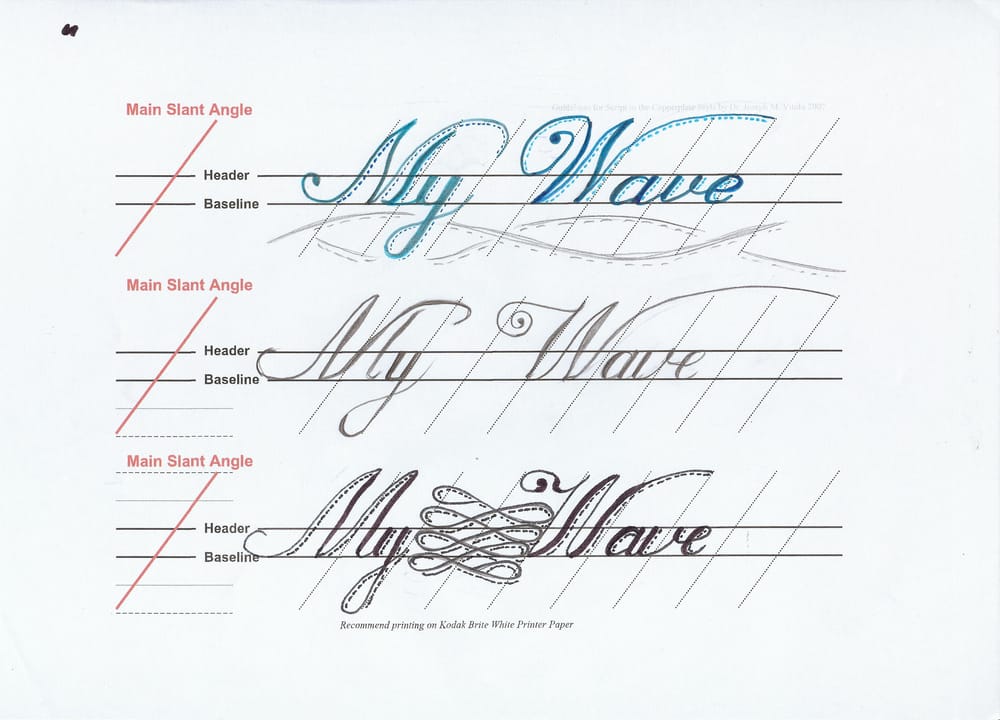 Guidelines for Script in the Copperplate Style by Dr. Joseph M. Vitolo 2002
Main Slant Angle
My Wave
Header
Baseline
Main Slant Angle
My Wave
Header
Baseline
Main Slant Angle
My Wave
Header
Baseline
Recommend printing on Kodak Brite White Printer Paper